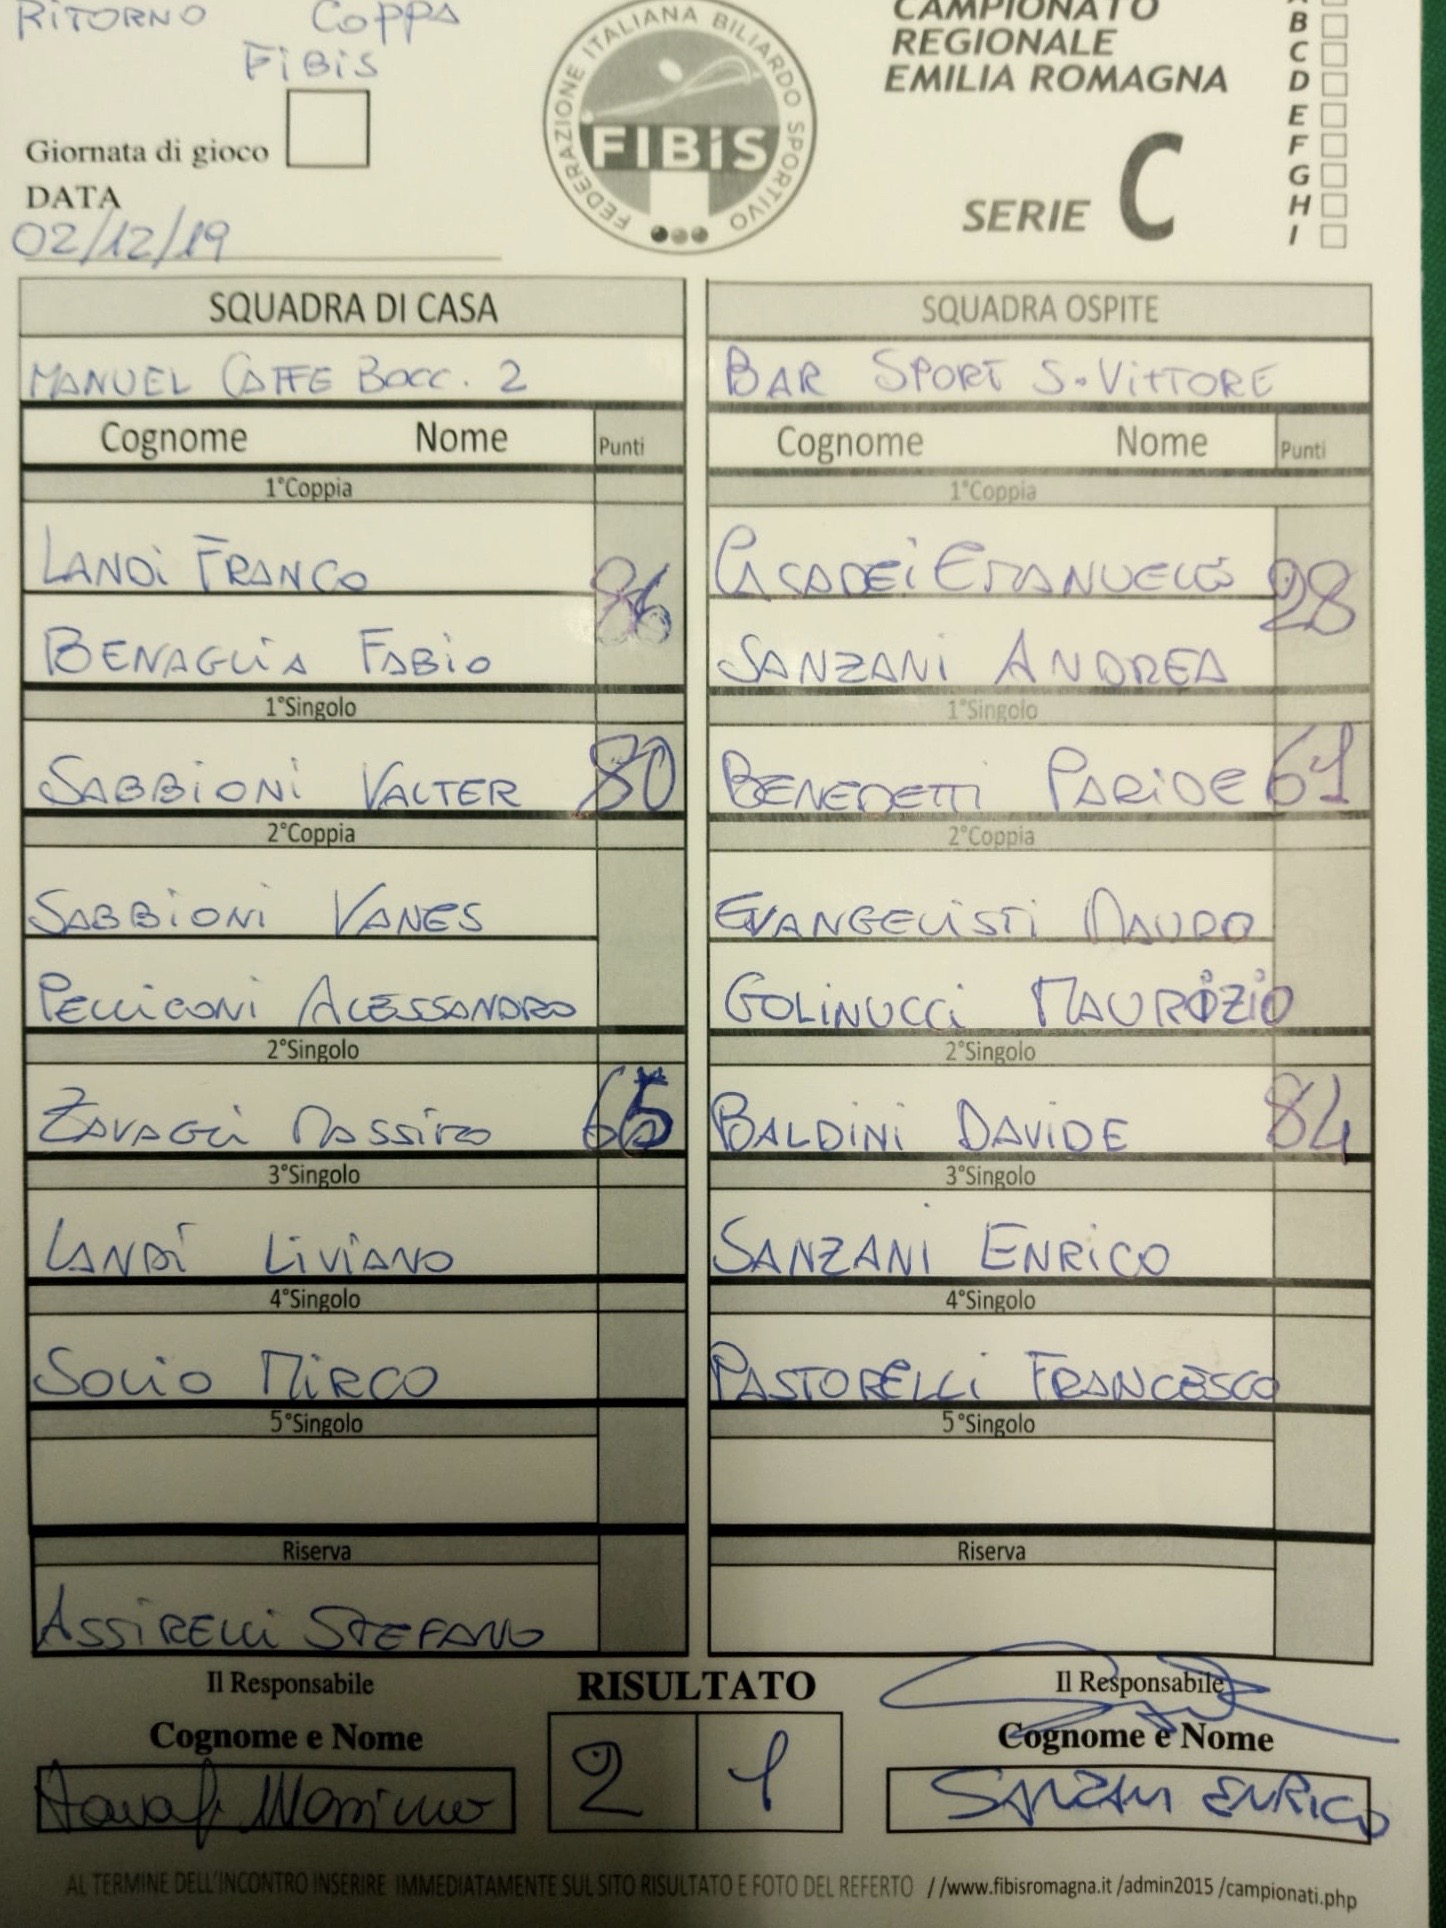 RITORNO COPPA
FIBIS
Giornata di gioco
DATA
02/12/19
FEDERAZIONE ITALIANA BILIARDO SPORTIVO
FIBiS
CAMPIONATO
REGIONALE
EMILIA ROMAGNA
SERIE C
B
C
D
E
F
G
H
I
SQUADRA DI CASA SQUADRA OSPITE
MANUEL CAFFE BOCC. 2 BAR SPORT S.VITTORE
Cognome Nome Punti Cognome Nome Punti
1°Coppia 1°Coppia
LANDI FRANCO CASADEI EMANUELE
86 28
BENAGLIA FABIO SANZANI ANDREA
1°Singolo 1°Singolo
SABBIONI VALTER 80 BENEDETTI PARIDE 61
2°Coppia 2°Coppia
SABBIONI VANES EVANGELISTI MAURO
PELLICONI ALESSANDRO GOLINUCCI MAURIZIO
2°Singolo 2°Singolo
ZAVAGLI MASSIMO 65 BALDINI DAVIDE 84
3°Singolo 3°Singolo
LANDI LIVIANO SANZANI ENRICO
4°Singolo 4°Singolo
SOLIO MIRCO PASTORELLI FRANCESCO
5°Singolo 5°Singolo
Riserva Riserva
ASSIRELLI STEFANO
Il Responsabile RISULTATO Il Responsabile
Cognome e Nome Cognome e Nome
Zavagli Massimo 2 1 SANZANI ENRICO
AL TERMINE DELL'INCONTRO INSERIRE IMMEDIATAMENTE SUL SITO RISULTATO E FOTO DEL REFERTO //www.fibisromagna.it /admin2015 /campionati.php